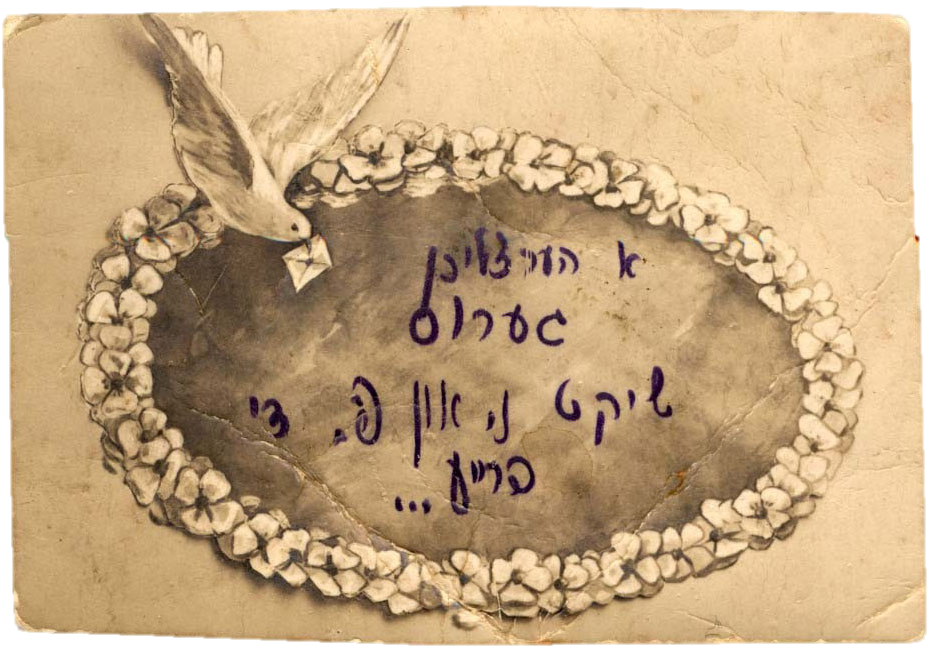 א הערצליכן
גערוס
שיקט נ. און פ. די
פרייע ...